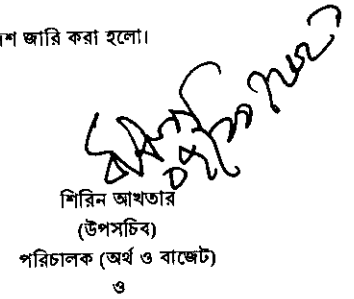 শ জারি করা হলো।
শিরিন আখতার
(উপসচিব)
পরিচালক (অর্থ ও বাজেট)
ও